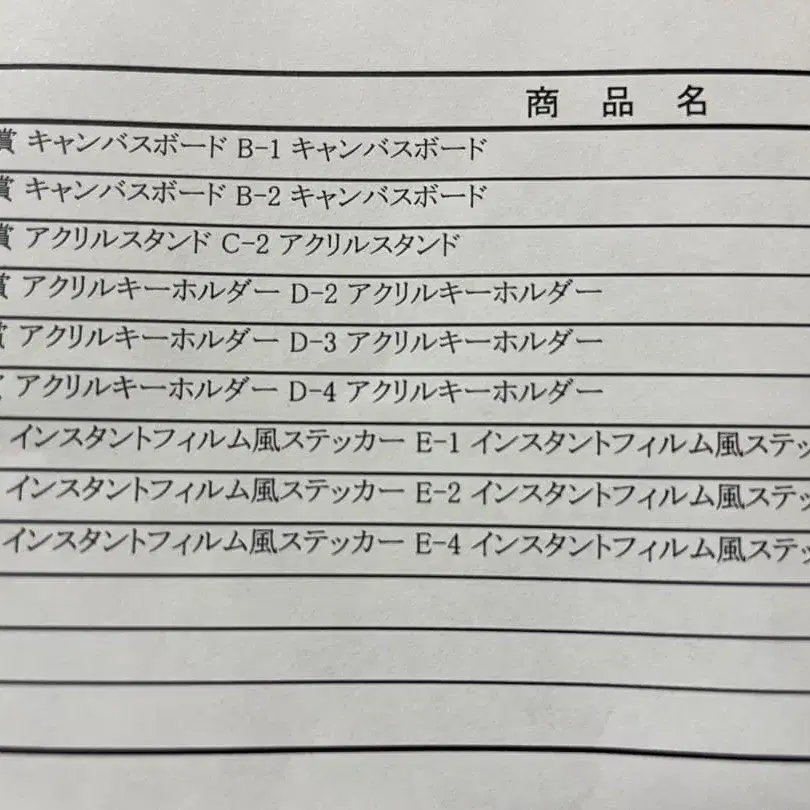 商 品 名
賞 キャンバスボード B-1 キャンバスボード
賞 キャンバスボード B-2 キャンバスボード
賞 アクリルスタンド C-2 アクリルスタンド
賞 アクリルキーホルダー D-2 アクリルキーホルダー
アクリルキーホルダー D-3 アクリルキーホルダー
アクリルキーホルダー D-4 アクリルキーホルダー
インスタントフィルム風ステッカー E-1 インスタントフィルム風ステッ
インスタントフィルム風ステッカー E-2 インスタントフィルム風ステッ
インスタントフィルム風ステッカー E-4 インスタントフィルム風ステッ